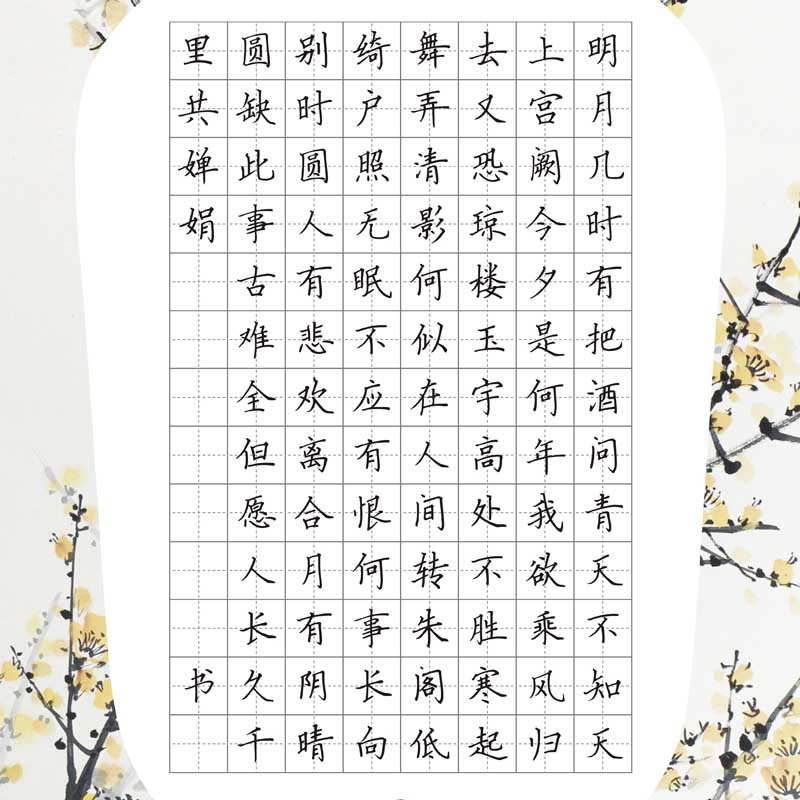 明月几时有把酒问青天不知天
上宫阙今夕是何年我欲乘风归
去又恐琼楼玉宇高处不胜寒起
舞弄清影何似在人间转朱阁低
绮户照无眠不应有恨何事长向
别时圆人有悲欢离合月有阴晴
圆缺此事古难全但愿人长久千
里共婵娟 书